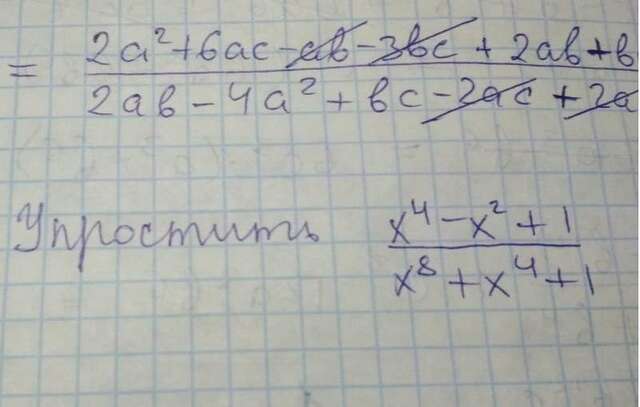 = 2a²+6ac-ab-3bc+2ab+b / 2ab-4a²+bc-2ac+2a
Упростить x⁴-x²+1 / x⁸+x⁴+1